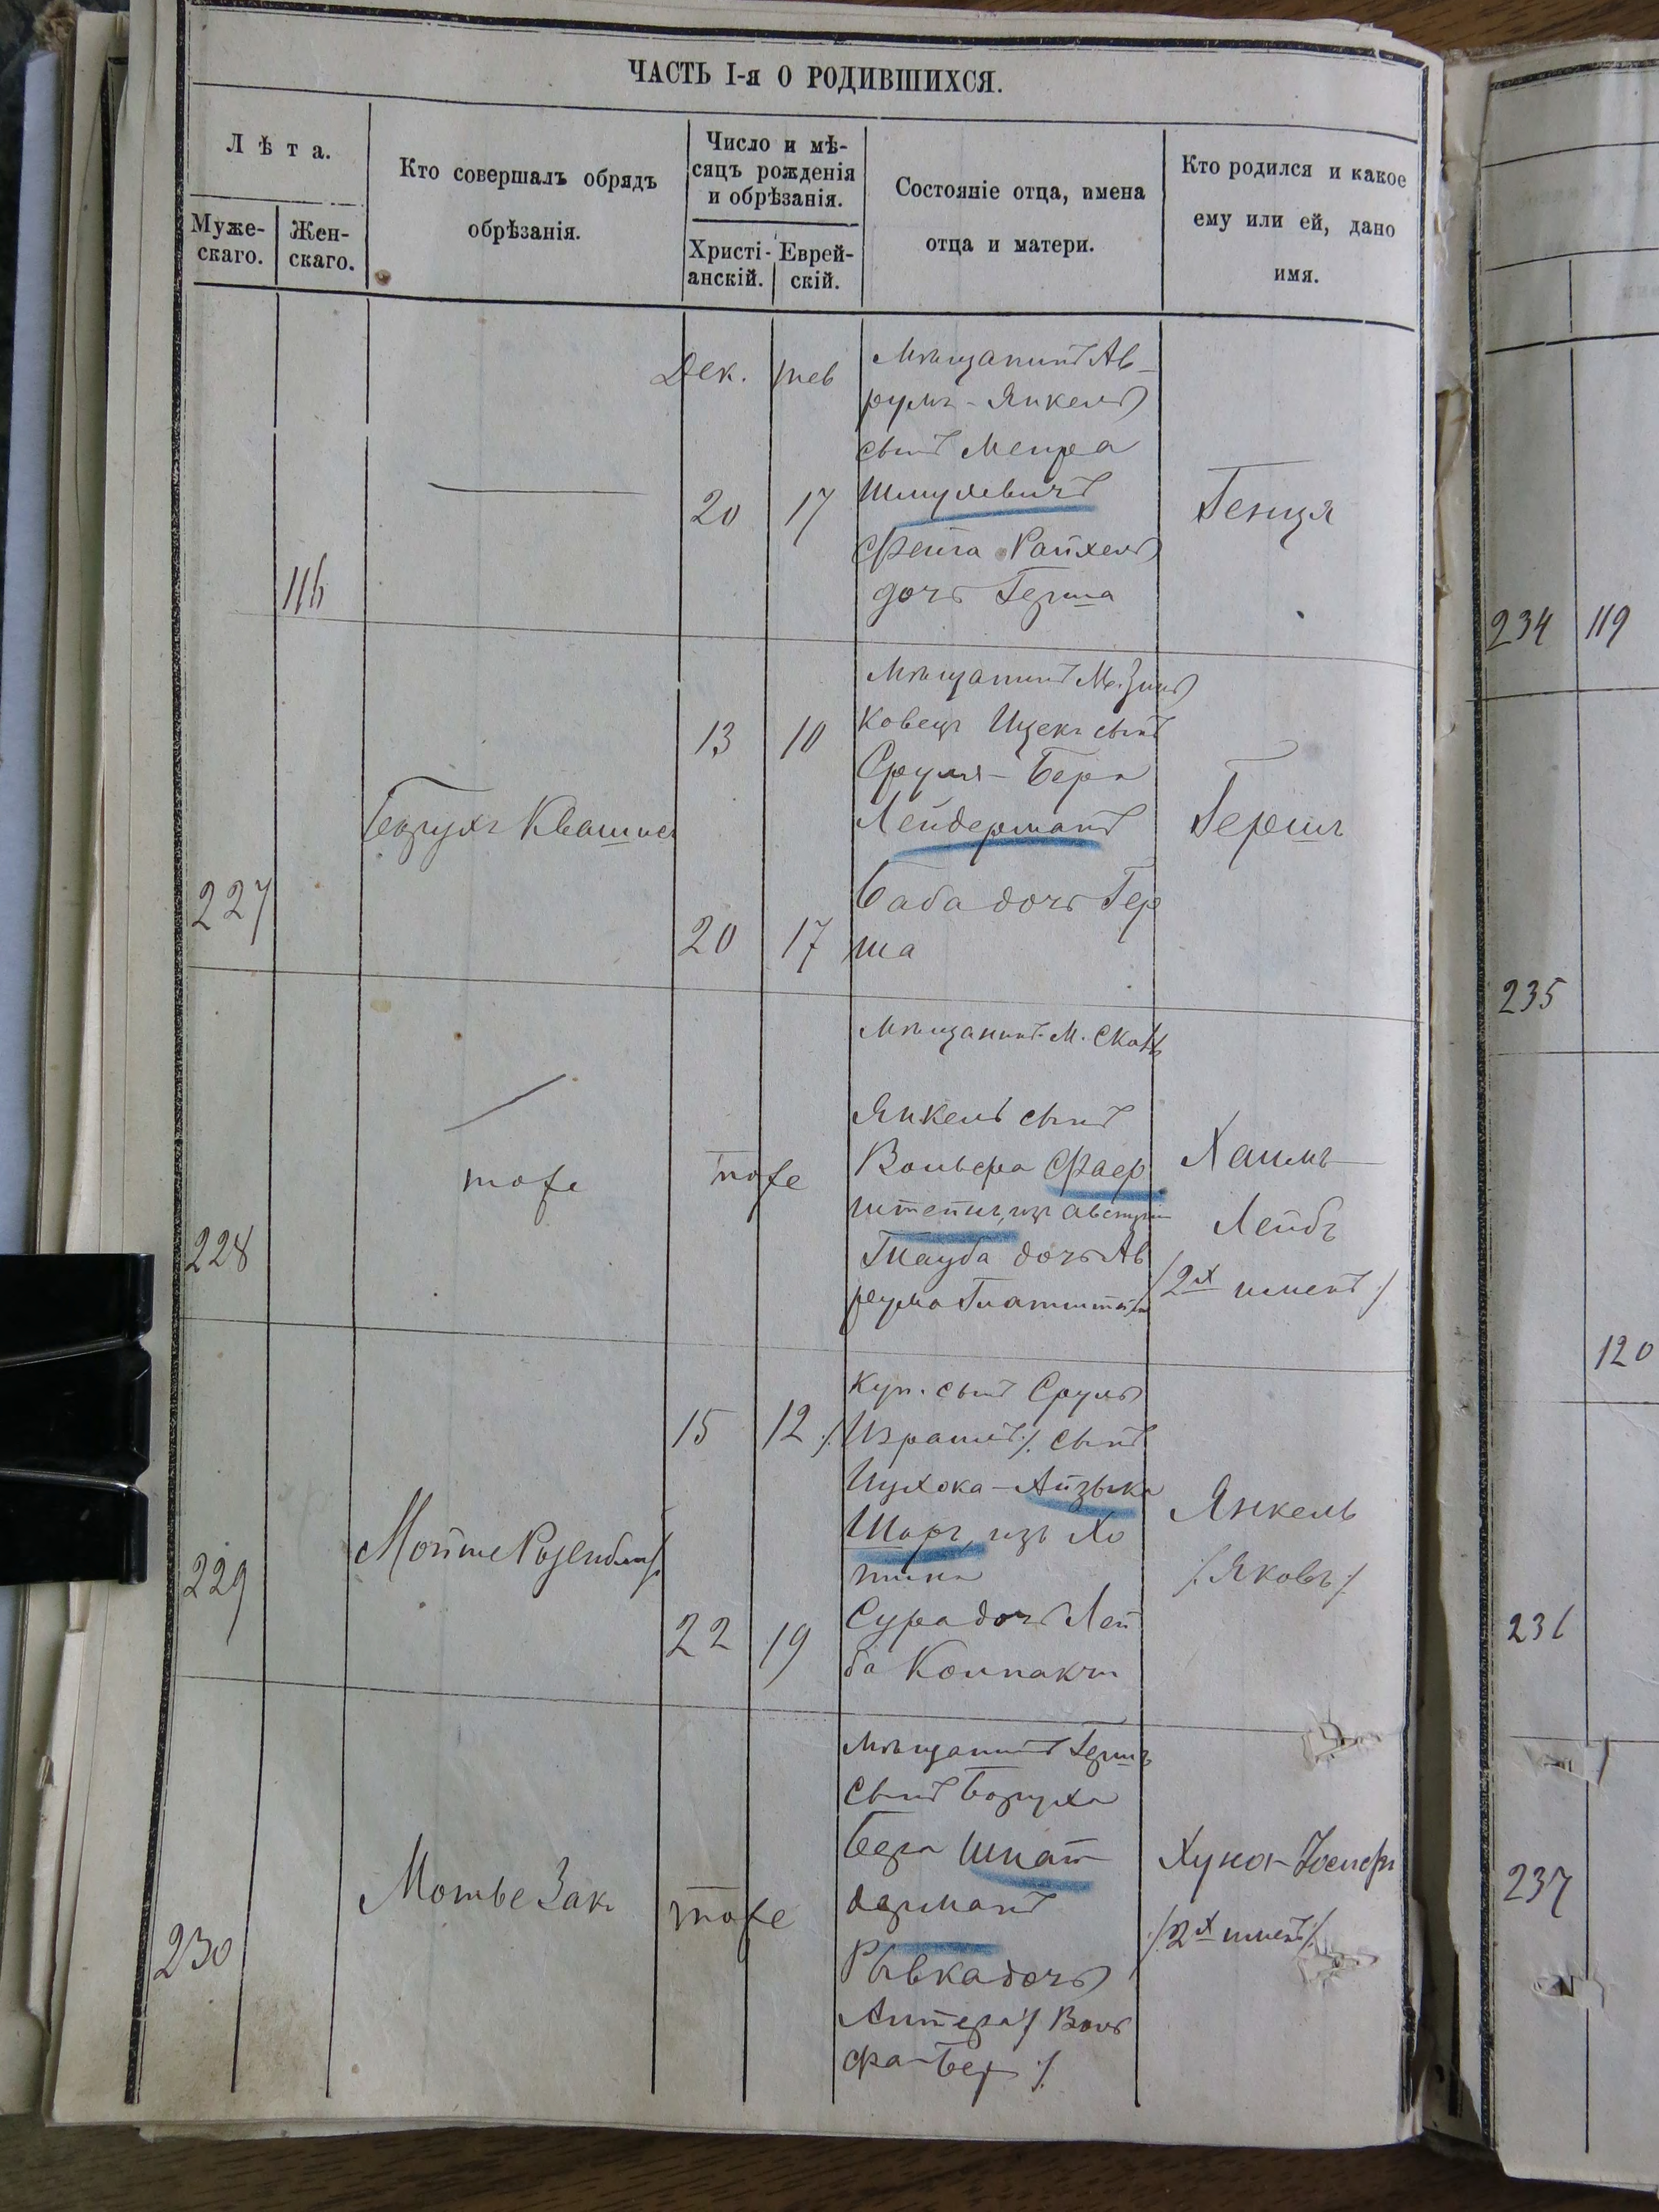 ЧАСТЬ I-я О РОДИВШИХСЯ.
Лѣта.
Муже-
скаго.
Жен-
скаго.
Кто совершалъ обрядъ
обрѣзанія.
Число и мѣ-
сяцъ рожденія
и обрѣзанія.
Христі-
анскій.
Еврей-
скій.
Состояніе отца, имена
отца и матери.
Кто родился и какое
ему или ей, дано
имя.
116
Дек. тев
20 17
Мѣщанинъ Ав-
румъ-Янкель
сынъ Меера
Шмулевичъ
Фейга Райхель
дочь Герша
Генця
227
Борухъ
13 10
20 17
Мѣщанинъ М. Зинь
ковецъ Ицекъ сынъ
Сруля-Бера
Лейдерманъ
Баба дочь Гер
ша
Гершъ
228
тоже
тоже
Мѣщанинъ М.
Янкель сынъ
Вольфа Фаер
штейнъ, изъ
Тауба дочь Ав
рума
Хаимъ
Лейбъ
/2х именъ/
229
Мойше
15 12
22 19
Куп. сынъ Сруль
/:Израиль:/ сынъ
Ицхока-Айзыка
Шоръ, изъ Хо
тина
Сура дочь Лей
ба
Янкель
/:Яковъ:/
230
Мотье Закъ
тоже
Мѣщанинъ Гершъ
сынъ Боруха
Бера Шпат
дерманъ
Рывка дочь
Алтера /: Воль
фа-Бер :/
Хуна-Іосифъ
/:2х именъ:/
234 119
235
120
236
237